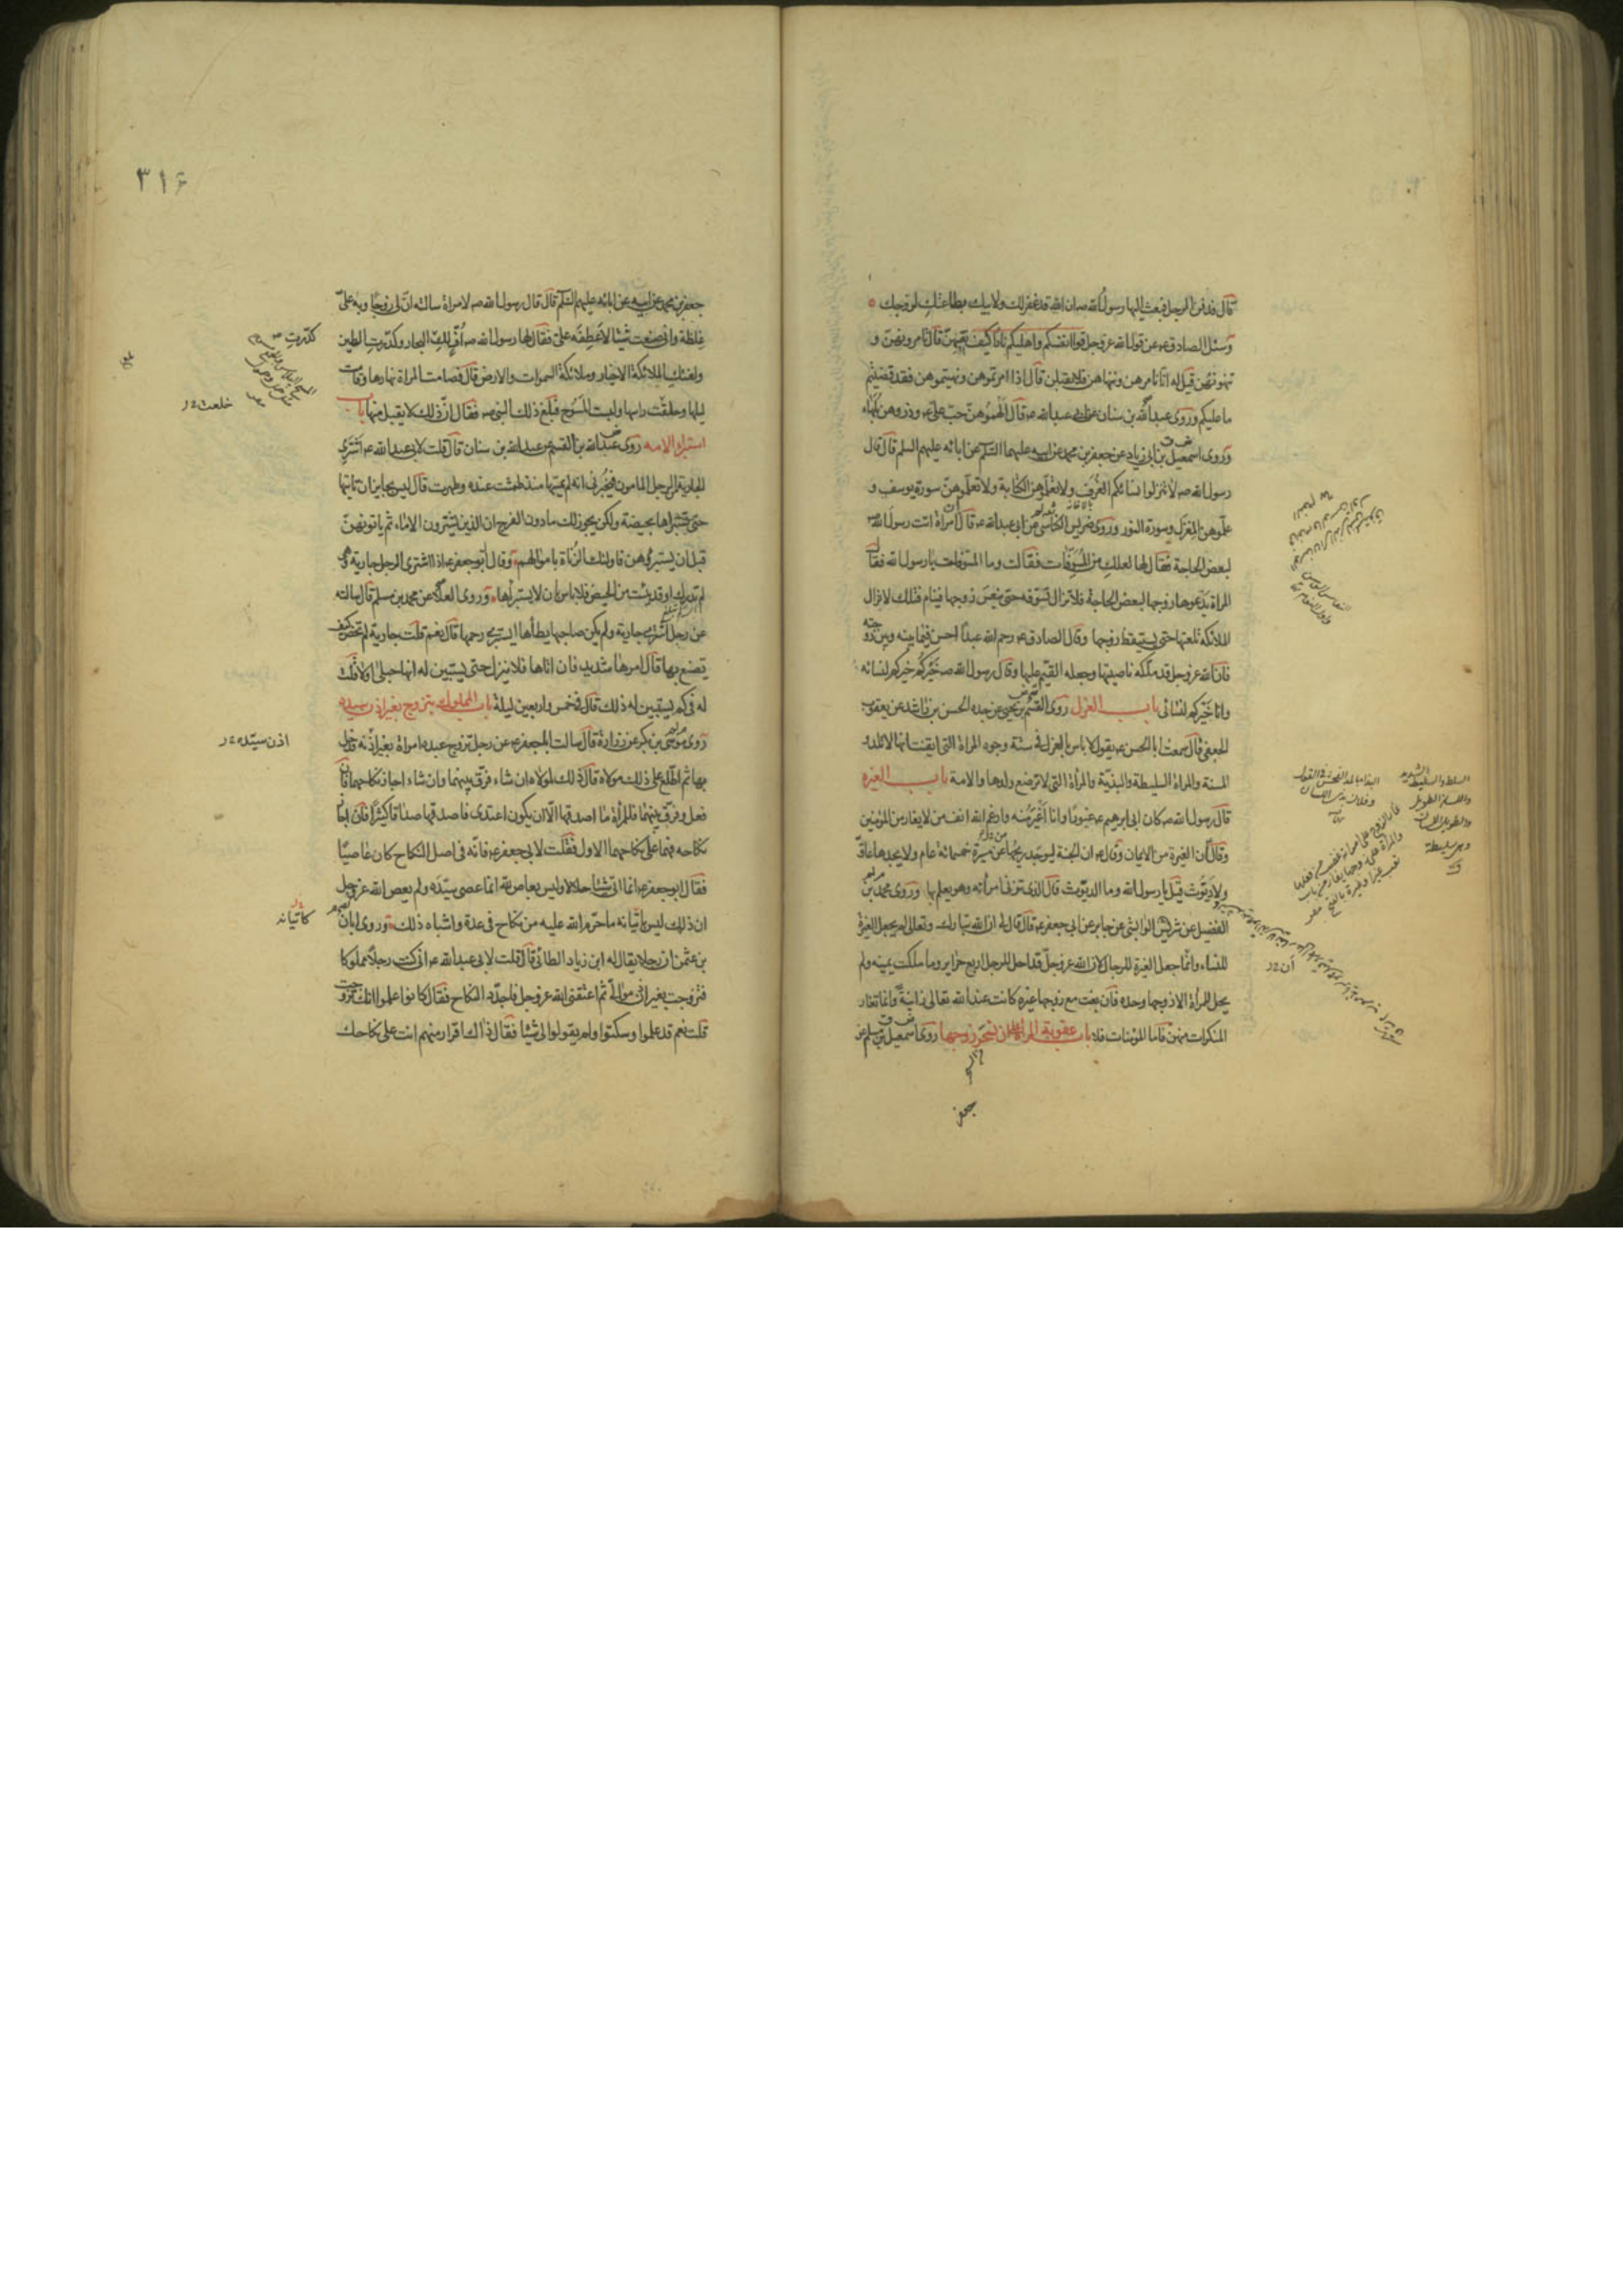 قال فدفن الرجل فبعث اليها رسول الله صه ان الله قد غفر لك ولابيك بطاعتك لزوجك
وسئل الصادق عه عن قول الله عز وجل قوا انفسكم واهليكم نارا كيف نقيهن قال تامرونهن و
تنهونهن قيل له انا نامرهن وننهاهن فلا يقبلن قال اذا امرتموهن ونهيتموهن فقد قضيتم
ما عليكم وروى عبد الله بن سنان عن ابي عبد الله عه قال الهموهن حب علي عه وذروهن بلهاء
وروى اسمعيل بن ابي زياد عن جعفر بن محمد عن ابيه عليهما السلم عن ابائه عليهم السلم قال قال
رسول الله صه لا تنزلوا نسائكم الغرف ولا تعلموهن الكتابة ولا تعلموهن سورة يوسف و
علموهن المغزل وسورة النور وروى ضريس الكناسي عن ابي عبد الله عه قال ان امراة اتت رسول الله صه
لبعض الحاجة فقال لها لعلك من المسوفات فقالت وما المسوفات يا رسول الله فقال
المراة يدعوها زوجها لبعض الحاجة فلا تزال تسوفه حتى ينعس زوجها فينام فتلك لا تزال
الملائكة تلعنها حتى يستيقظ زوجها وقال الصادق عه رحم الله عبدا احسن فيما بينه وبين زوجته
فان الله عز وجل قد ملكه ناصيتها وجعله القيم عليها وقال رسول الله صه خيركم خيركم لنسائه
وانا خيركم لنسائي باب العزل روى القسم بن يحيى عن جده الحسن بن راشد عن يعقوب
الجعفي قال سمعت ابا الحسن عه يقول لا باس بالعزل في ستة وجوه المراة التي ايقنت انها لا تلد و
المسنة والمراة السليطة والبذية والمراة التي لا ترضع ولدها والامة باب الغيرة
قال رسول الله صه كان ابي ابرهيم عه غيورا وانا اغير منه وارغم الله انف من لا يغار من المؤمنين
وقال ان الغيرة من الايمان وقال عه ان الجنة ليوجد ريحها من مسيرة خمسمائة عام ولا يجدها عاق
ولا ديوث قيل يا رسول الله وما الديوث قال الذي تزني امراته وهو يعلم بها وروى محمد بن
الفضيل عن شريس الوابشي عن جابر عن ابي جعفر عه قال قال لي ان الله تبارك وتعالى لم يجعل الغيرة
للنساء وانما جعل الغيرة للرجال لان الله عز وجل قد احل للرجل اربع حراير وما ملكت يمينه ولم
يحل للمراة الا زوجها وحده فان بغت مع زوجها غيره كانت عند الله تعالى زانية وانما تغار
المنكرات منهن فاما المؤمنات فلا باب عقوبة المراة على ان تسحر زوجها روى اسمعيل بن مسلم عن
جعفر
السلط والسليط الشديد
واللسان الطويل
والطويل اللسان
وهي سليطة
ق
البذاء بالمد الفحش في القول
وفلان بذي اللسان
٣١٤
جعفر بن محمد عن ابيه عن ابائه عليهم السلم قال قال رسول الله صه لامراة سالته ان لي زوجا وبه علي
غلظة واني صنعت شيئا لاعطفه علي فقال لها رسول الله صه اف لك كدرت البحار وكدرت الطين
ولعنتك الملائكة الاخيار وملائكة السموات والارض قال فصامت المراة نهارها وقامت
ليلها وحلقت راسها ولبست المسوح فبلغ ذلك النبي صه فقال ان ذلك لا يقبل منها باب
استبراء الامة روى عبد الله بن القسم عن عبد الله بن سنان قال قلت لابي عبد الله عه اشتري
الجارية من الرجل المامون فيخبرني انه لم يمسها منذ طمثت عنده وطهرت قال ليس بجايز ان تاتيها
حتى تستبرئها بحيضة ولكن يجوز لك ما دون الفرج ان الذين يشترون الاماء ثم ياتونهن
قبل ان يستبرؤهن فاولئك الزناة باموالهم وقال ابو جعفر عه اذا اشترى الرجل جارية وهي
لم تدرك او قد يئست من الحيض فلا باس بان لا يستبرأها وروى العلا عن محمد بن مسلم قال سالته
عن رجل اشترى جارية ولم يكن صاحبها يطأها ايستبرئ رحمها قال نعم قلت جارية لم تحض كيف
يصنع بها قال امرها شديد فان اتاها فلا ينزل حتى يستبين له انها حبلى او لا قلت
له في كم يستبين له ذلك قال في خمس واربعين ليلة باب المملوك يتزوج بغير اذن سيده
روى موسى بن بكر عن زرارة قال سالت ابا جعفر عه عن رجل تزوج عبده امراة بغير اذنه فدخل
بها ثم اطلع على ذلك مولاه قال ذلك لمولاه ان شاء فرق بينهما وان شاء اجاز نكاحهما فان
فعل وفرق بينهما فللمراة ما اصدقها الا ان يكون اعتدى فاصدقها صداقا كثيرا فان اجاز
نكاحه فهما على نكاحهما الاول فقلت لابي جعفر عه فانه في اصل النكاح كان عاصيا
فقال ابو جعفر عه انما اتى شيئا حلالا وليس بعاص لله انما عصى سيده ولم يعص الله عز وجل
ان ذلك ليس باتيانه ما حرم الله عليه من نكاح في عدة واشباه ذلك وروى ابان
بن عثمن ان رجلا يقال له ابن زياد الطائي قال قلت لابي عبد الله عه اني كنت رجلا مملوكا
فتزوجت بغير اذن موالي ثم اعتقني الله عز وجل فاجدد النكاح فقال كانوا علموا انك تزوجت
قلت نعم قد علموا وسكتوا ولم يقولوا لي شيئا فقال ذاك اقرار منهم انت على نكاحك
كدرت
اذن سيده
كاتيانه